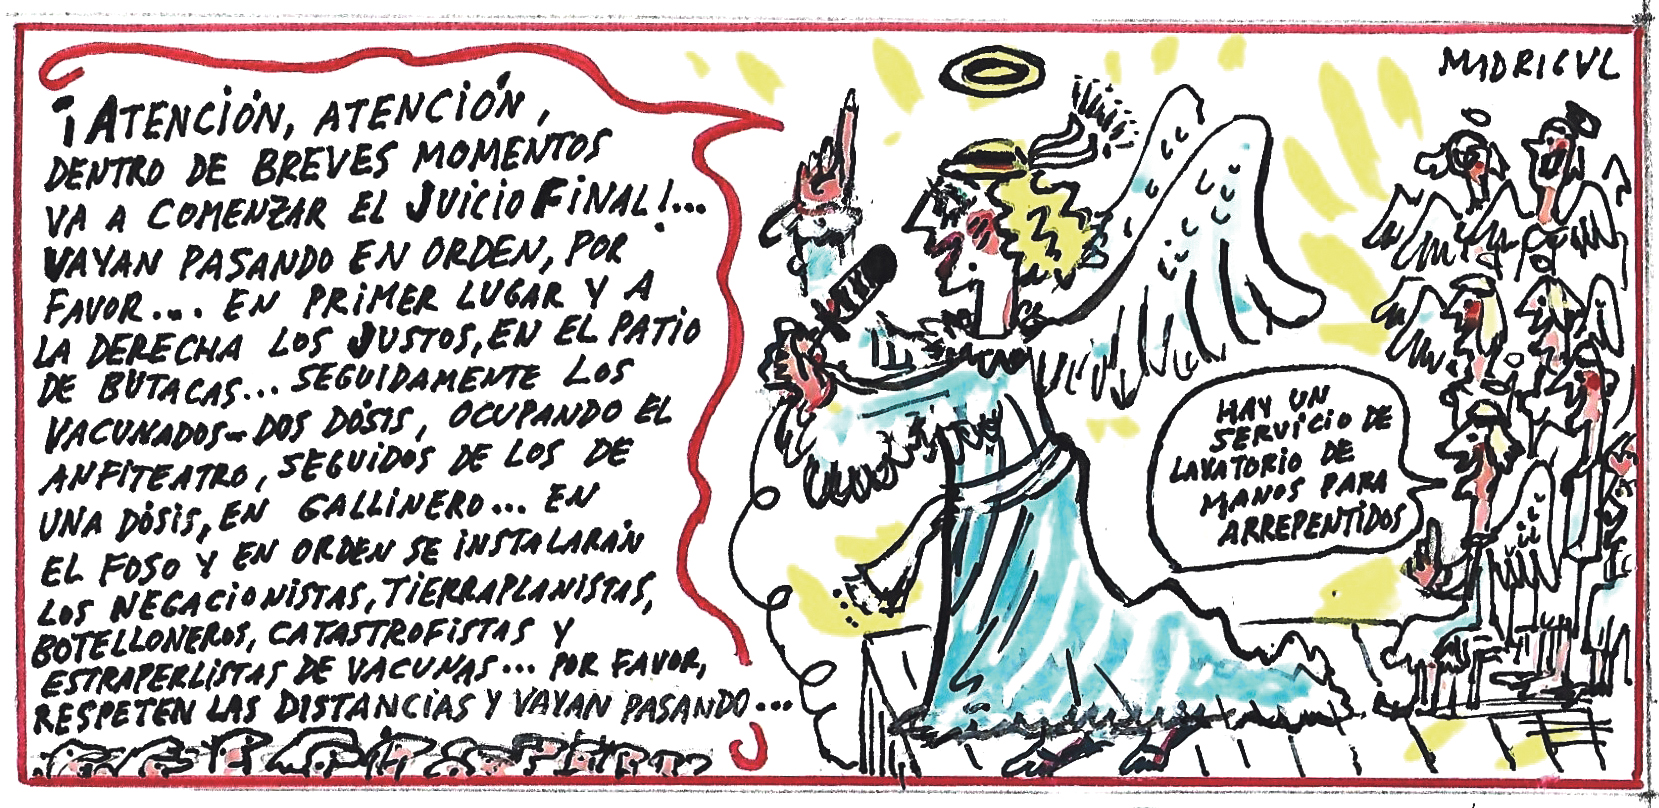 ¡ATENCIÓN, ATENCIÓN,
DENTRO DE BREVES MOMENTOS
VA A COMENZAR EL JUICIO FINAL!...
VAYAN PASANDO EN ORDEN, POR
FAVOR... EN PRIMER LUGAR Y A
LA DERECHA LOS JUSTOS, EN EL PATIO
DE BUTACAS... SEGUIDAMENTE LOS
VACUNADOS-DOS DÓSIS, OCUPANDO EL
ANFITEATRO, SEGUIDOS DE LOS DE
UNA DÓSIS, EN GALLINERO... EN
EL FOSO Y EN ORDEN SE INSTALARÁN
LOS NEGACIONISTAS, TIERRAPLANISTAS,
BOTELLONEROS, CATASTROFISTAS Y
ESTRAPERLISTAS DE VACUNAS... POR FAVOR,
RESPETEN LAS DISTANCIAS Y VAYAN PASANDO...
MADRIGVL
HAY UN
SERVICIO DE
LAVATORIO DE
MANOS PARA
ARREPENTIDOS